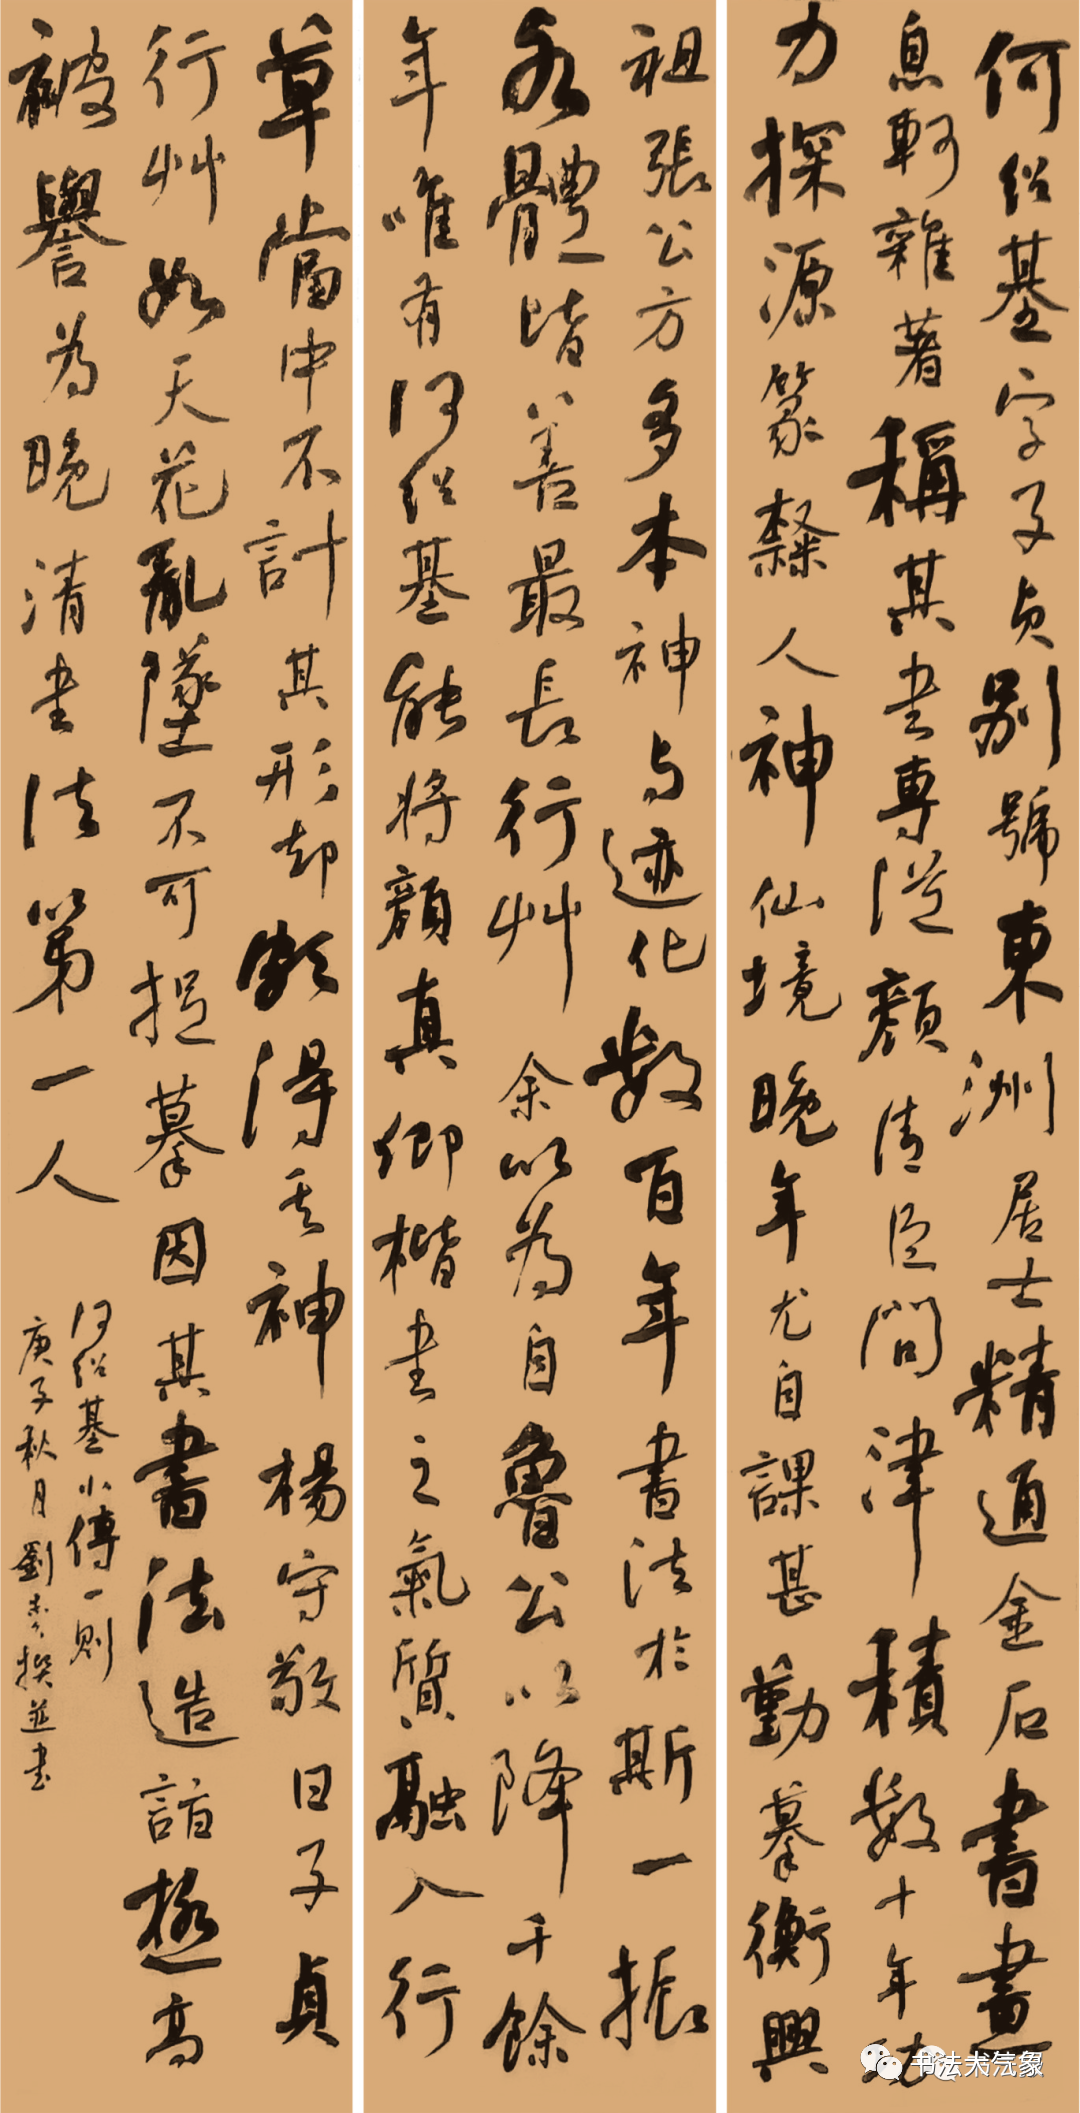 何绍基字子贞别號東洲居士精通金石書畫
息軒雜著稱其书專从顏清臣問津積數十年功
力探源篆隸人神仙境晚年尤自課甚勤摹衡興
祖張公方多本神与迹化数百年書法於斯一振
各體皆善最長行艸余以為自魯公以降千餘
年唯有何绍基能将顏真卿楷书之氣質融入行
草當中不計其形却颇得其神楊守敬曰子貞
行艸如天花亂墜不可捉摹因其書法造詣极高
被譽為晚清书法第一人
何绍基小傳一则
庚子秋月劉撰並书
书法大气象